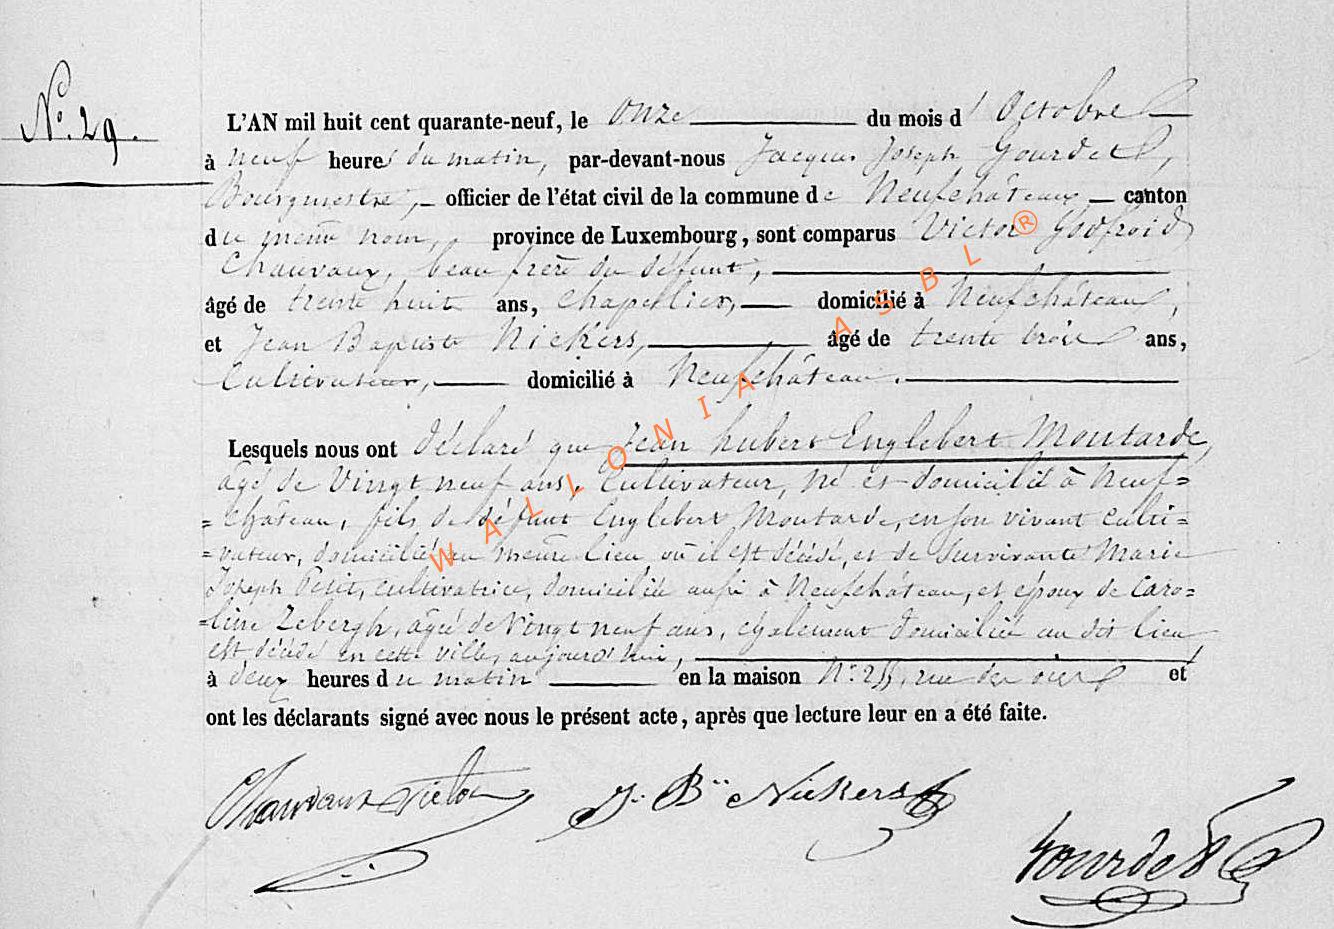 N°. 29.
L'AN mil huit cent quarante-neuf, le onze du mois d'Octobre
à neuf heures du matin, par-devant-nous Jacques Joseph Gourdet,
Bourgmestre, officier de l'état civil de la commune de Neufchâteau canton
du même nom, province de Luxembourg, sont comparus Victor Godfroid
Chauvaux, beau frère du défunt,
âgé de trente huit ans, chapellier, domicilié à Neufchâteau,
et Jean Baptiste Nickers, âgé de trente trois ans,
Cultivateur, domicilié à Neufchâteau.
Lesquels nous ont déclaré que Jean hubert Englebert Moutarde,
âgé de Vingt neuf ans, Cultivateur, né et domicilié à Neuf=
=château, fils de défunt Englebert Moutarde, en son vivant culti=
=vateur, domicilié au même lieu, où il est décédé, et de survivante Marie
Joseph Petit, cultivatrice, domiciliée aussi à Neufchâteau, et époux de Caro=
=line Zebergh, âgée de Vingt neuf ans, également domiciliée au dit lieu
est décédé en cette ville, aujourd'hui,
à deux heures du matin en la maison N° rue et
ont les déclarants signé avec nous le présent acte, après que lecture leur en a été faite.
Chauvaux Victor J. Bte Nickers
Gourdet
WALLONIA ASBL ®